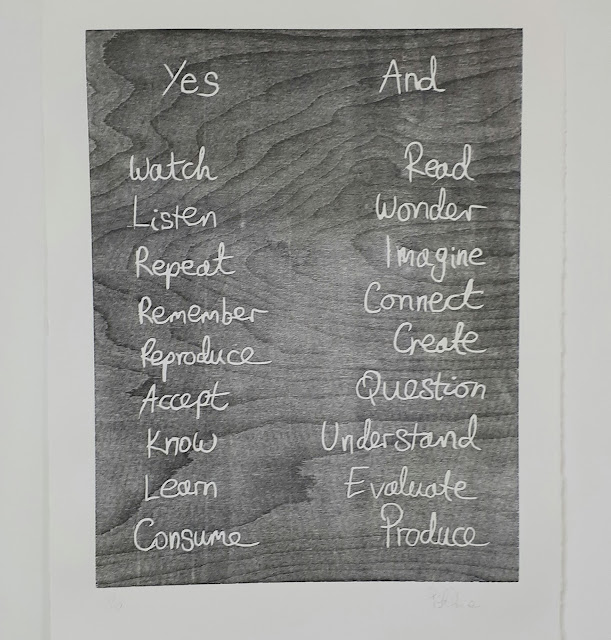 Yes And
Watch Read
Listen Wonder
Repeat Imagine
Remember Connect
Reproduce Create
Accept Question
Know Understand
Learn Evaluate
Consume Produce